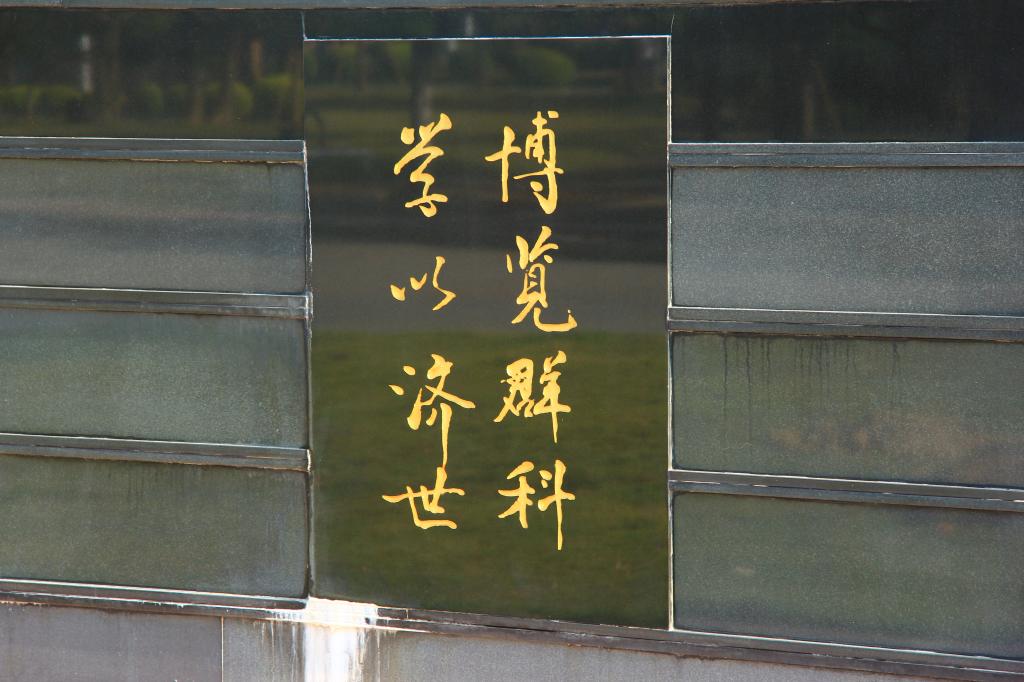 博览群科
学以济世